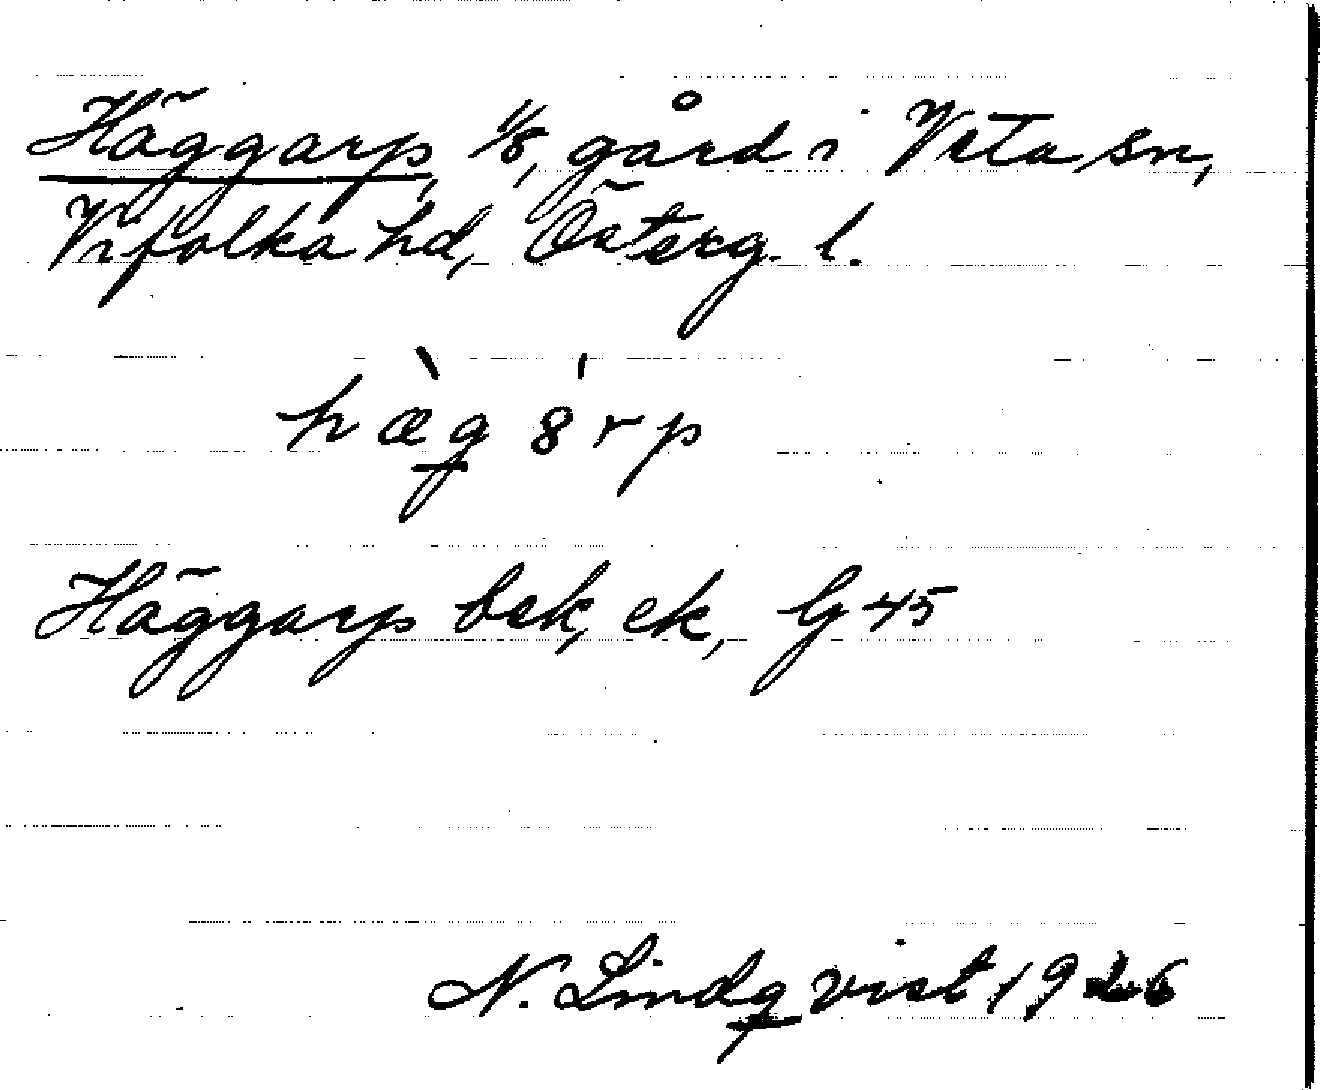 Häggarp, 1/8, gård i Veta sn,
Vifolka hd, Österg. l.
hæ̀g 8́rp
Häggarp bek, ek, Gg 45
N. Lindqvist 1926